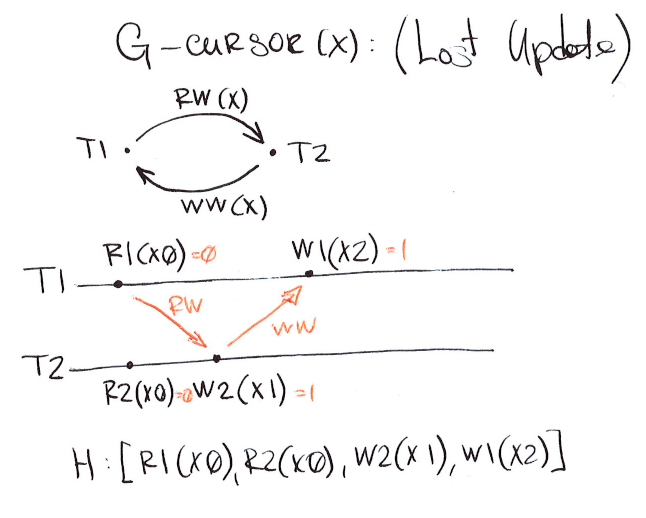 G-CURSOR(X): (Lost Update)
RW(X)
T1 T2
WW(X)
R1(X0)=0 W1(X2)=1
T1
RW
WW
T2
R2(X0)=0 W2(X1)=1
H:[R1(X0), R2(X0), W2(X1), W1(X2)]